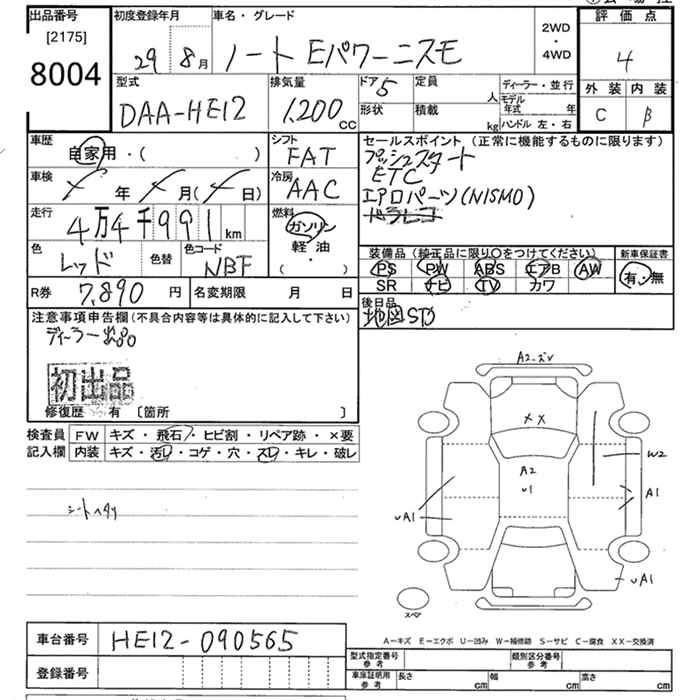 出品番号
[2175]
8004
初度登録年月
29 8月
車名・グレード
ノート Eパワーニスモ
2WD
・
4WD
評価点
4
外装 内装
C B
型式
DAA-HE12
排気量
1,200 cc
ドア 5
定員
人
形状
積載
kg
ディーラー・並行
モデル年式 年
ハンドル 左・右
車歴
自家用・( )
シフト
FAT
車検
年 月( 日)
冷房
AAC
走行
4万4千991 km
燃料
ガソリン
軽・油
・
( )
色
レッド
色替
色コード
NBF
セールスポイント (正常に機能するものに限ります)
プッシュスタート
ETC
エアロパーツ(NISMO)
ドラレコ
装備品(純正品に限り○をつけてください) 新車保証書
PS PW ABS エアB AW
SR ナビ TV カワ
有・無
R券 7,890 円
名変期限 月 日
後日品
地図SD
注意事項申告欄(不具合内容等は具体的に記入して下さい)
ディーラー出品
初出品
修復歴 有 〔箇所 〕
検査員
記入欄
FW キズ・飛石・ヒビ割・リペア跡・×要
内装 キズ・汚レ・コゲ・穴・スレ・キレ・破レ
シートヘタリ
A2
XX
A2
U1
W2
A1
UA1
UA1
スペア
車台番号 HE12-090565
登録番号
A-キズ E-エクボ U-凹み W-補修跡 S-サビ C-腐食 XX-交換済
型式指定番号
参考
類別区分番号
参考
車庫証明用
参考
長さ cm
幅 cm
高さ cm